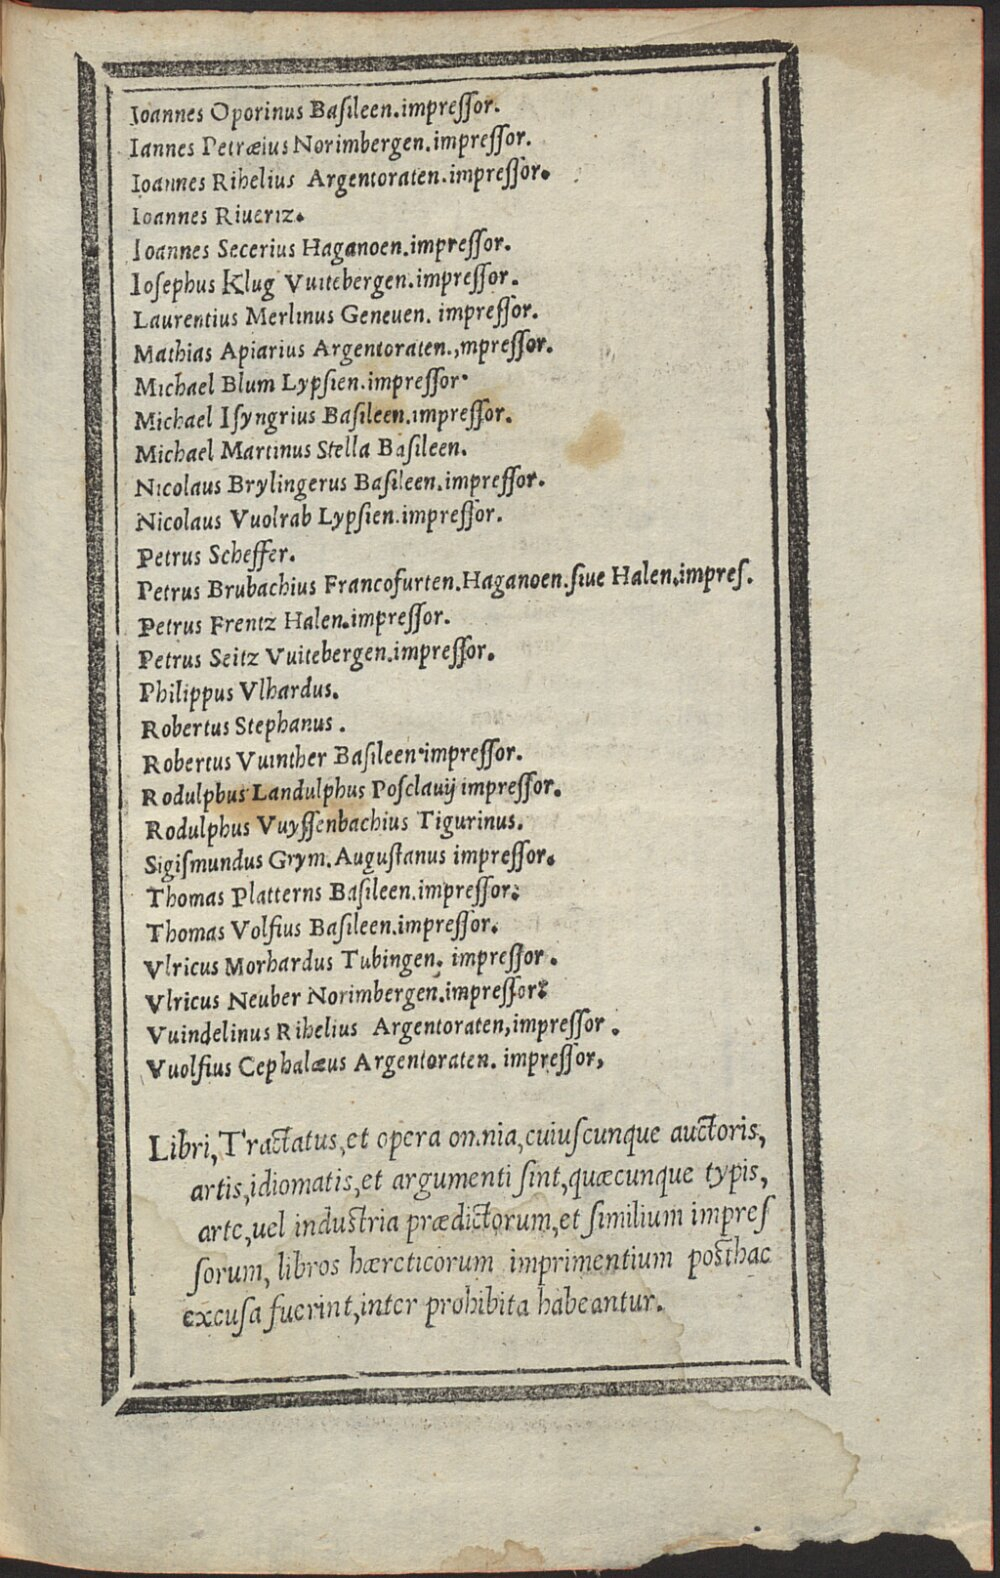 Ioannes Oporinus Baſileen.impreſſor.
Iannes Petræius Norimbergen.impreſſor.
Ioannes Rihelius Argentoraten.impreſſor.
Ioannes Riueriz.
Ioannes Secerius Haganoen.impreſſor.
Ioſephus Klug Vuitebergen.impreſſor.
Laurentius Merlinus Geneuen. impreſſor.
Mathias Apiarius Argentoraten.,mpreſſor.
Michael Blum Lypſien.impreſſor.
Michael Iſyngrius Baſileen.impreſſor.
Michael Martinus Stella Baſileen.
Nicolaus Brylingerus Baſileen.impreſſor.
Nicolaus Vuolrab Lypſien.impreſſor.
Petrus Scheffer.
Petrus Brubachius Francofurten.Haganoen.ſiue Halen.impreſ.
Petrus Frentz Halen.impreſſor.
Petrus Seitz Vuitebergen.impreſſor.
Philippus Vlhardus.
Robertus Stephanus .
Robertus Vuinther Baſileen.impreſſor.
Rodulphus Landulphus Poſclauij impreſſor.
Rodulphus Vuyſſenbachius Tigurinus.
Sigiſmundus Grym. Auguſtanus impreſſor.
Thomas Platterns Baſileen.impreſſor.
Thomas Volfius Baſileen.impreſſor.
Vlricus Morhardus Tubingen. impreſſor .
Vlricus Neuber Norimbergen.impreſſor.
Vuindelinus Rihelius Argentoraten,impreſſor .
Vuolfius Cephalæus Argentoraten. impreſſor,
Libri, Tractatus,et opera omnia,cuiuſcunque auctoris,
artis,idiomatis,et argumenti ſint,quæcunque typis,
arte,uel induſtria prædictorum,et ſimilium impreſ
ſorum, libros hæreticorum imprimentium poſthac
excuſa fuerint,inter prohibita habeantur.